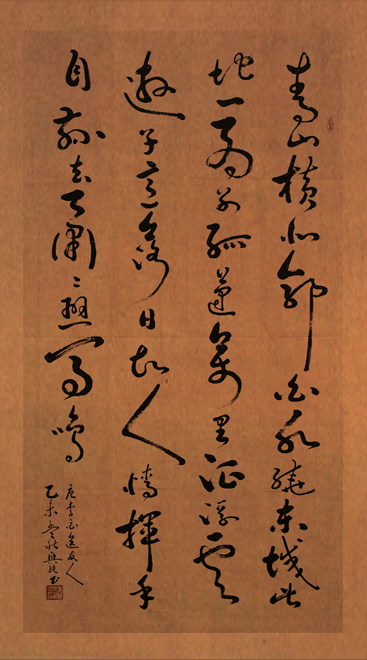 青山橫北郭白水繞東城此
地一為別孤蓬萬里征浮雲
遊子意落日故人情揮手
自茲去蕭〻班馬鳴
唐李白送友人
乙未秋書